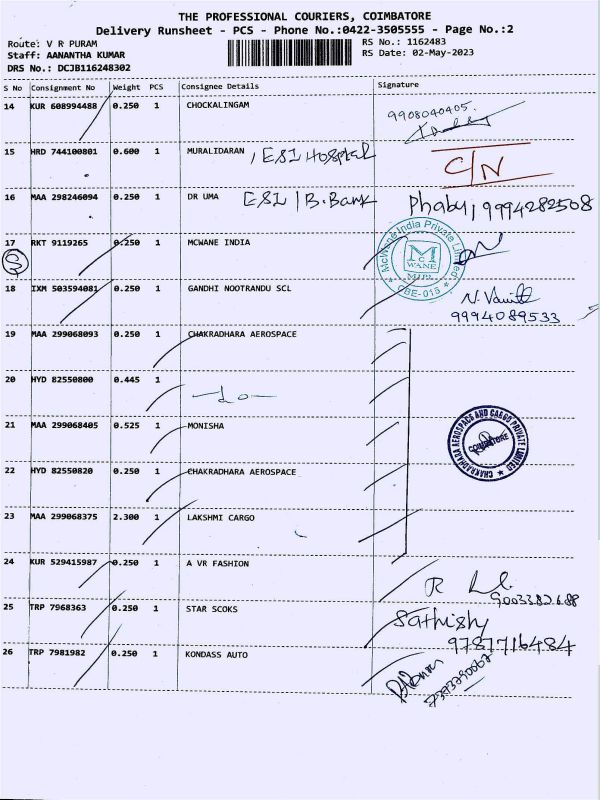 THE PROFESSIONAL COURIERS, COIMBATORE
Delivery Runsheet - PCS - Phone No.:0422-3505555 - Page No.:2
Route: V R PURAM RS No.: 1162483
Staff: AANANTHA KUMAR RS Date: 02-May-2023
DRS No.: DCJB116248302
S No Consignment No Weight PCS Consignee Details Signature
14 KUR 608994488 0.250 1 CHOCKALINGAM 9908040405.
15 HRD 744100801 0.600 1 MURALIDARAN , ESI Hospital C/N
16 MAA 298246094 0.250 1 DR UMA ESI / B. Bank Phaby, 9994282508
17 RKT 9119265 0.250 1 MCWANE INDIA
McWane India Private Limited
MCWANE
CBE-015
18 IXM 503594081 0.250 1 GANDHI NOOTRANDU SCL
9994089533
19 MAA 299068093 0.250 1 CHAKRADHARA AEROSPACE
20 HYD 82550800 0.445 1 -do-
21 MAA 299068405 0.525 1 MONISHA
CHAKRADHARA AEROSPACE AND CARGO PRIVATE LIMITED
COIMBATORE
22 HYD 82550820 0.250 1 CHAKRADHARA AEROSPACE
23 MAA 299068375 2.300 1 LAKSHMI CARGO
24 KUR 529415987 0.250 1 A VR FASHION
9003382688
25 TRP 7968363 0.250 1 STAR SCOKS Sathish
9787716484
26 TRP 7981982 0.250 1 KONDASS AUTO